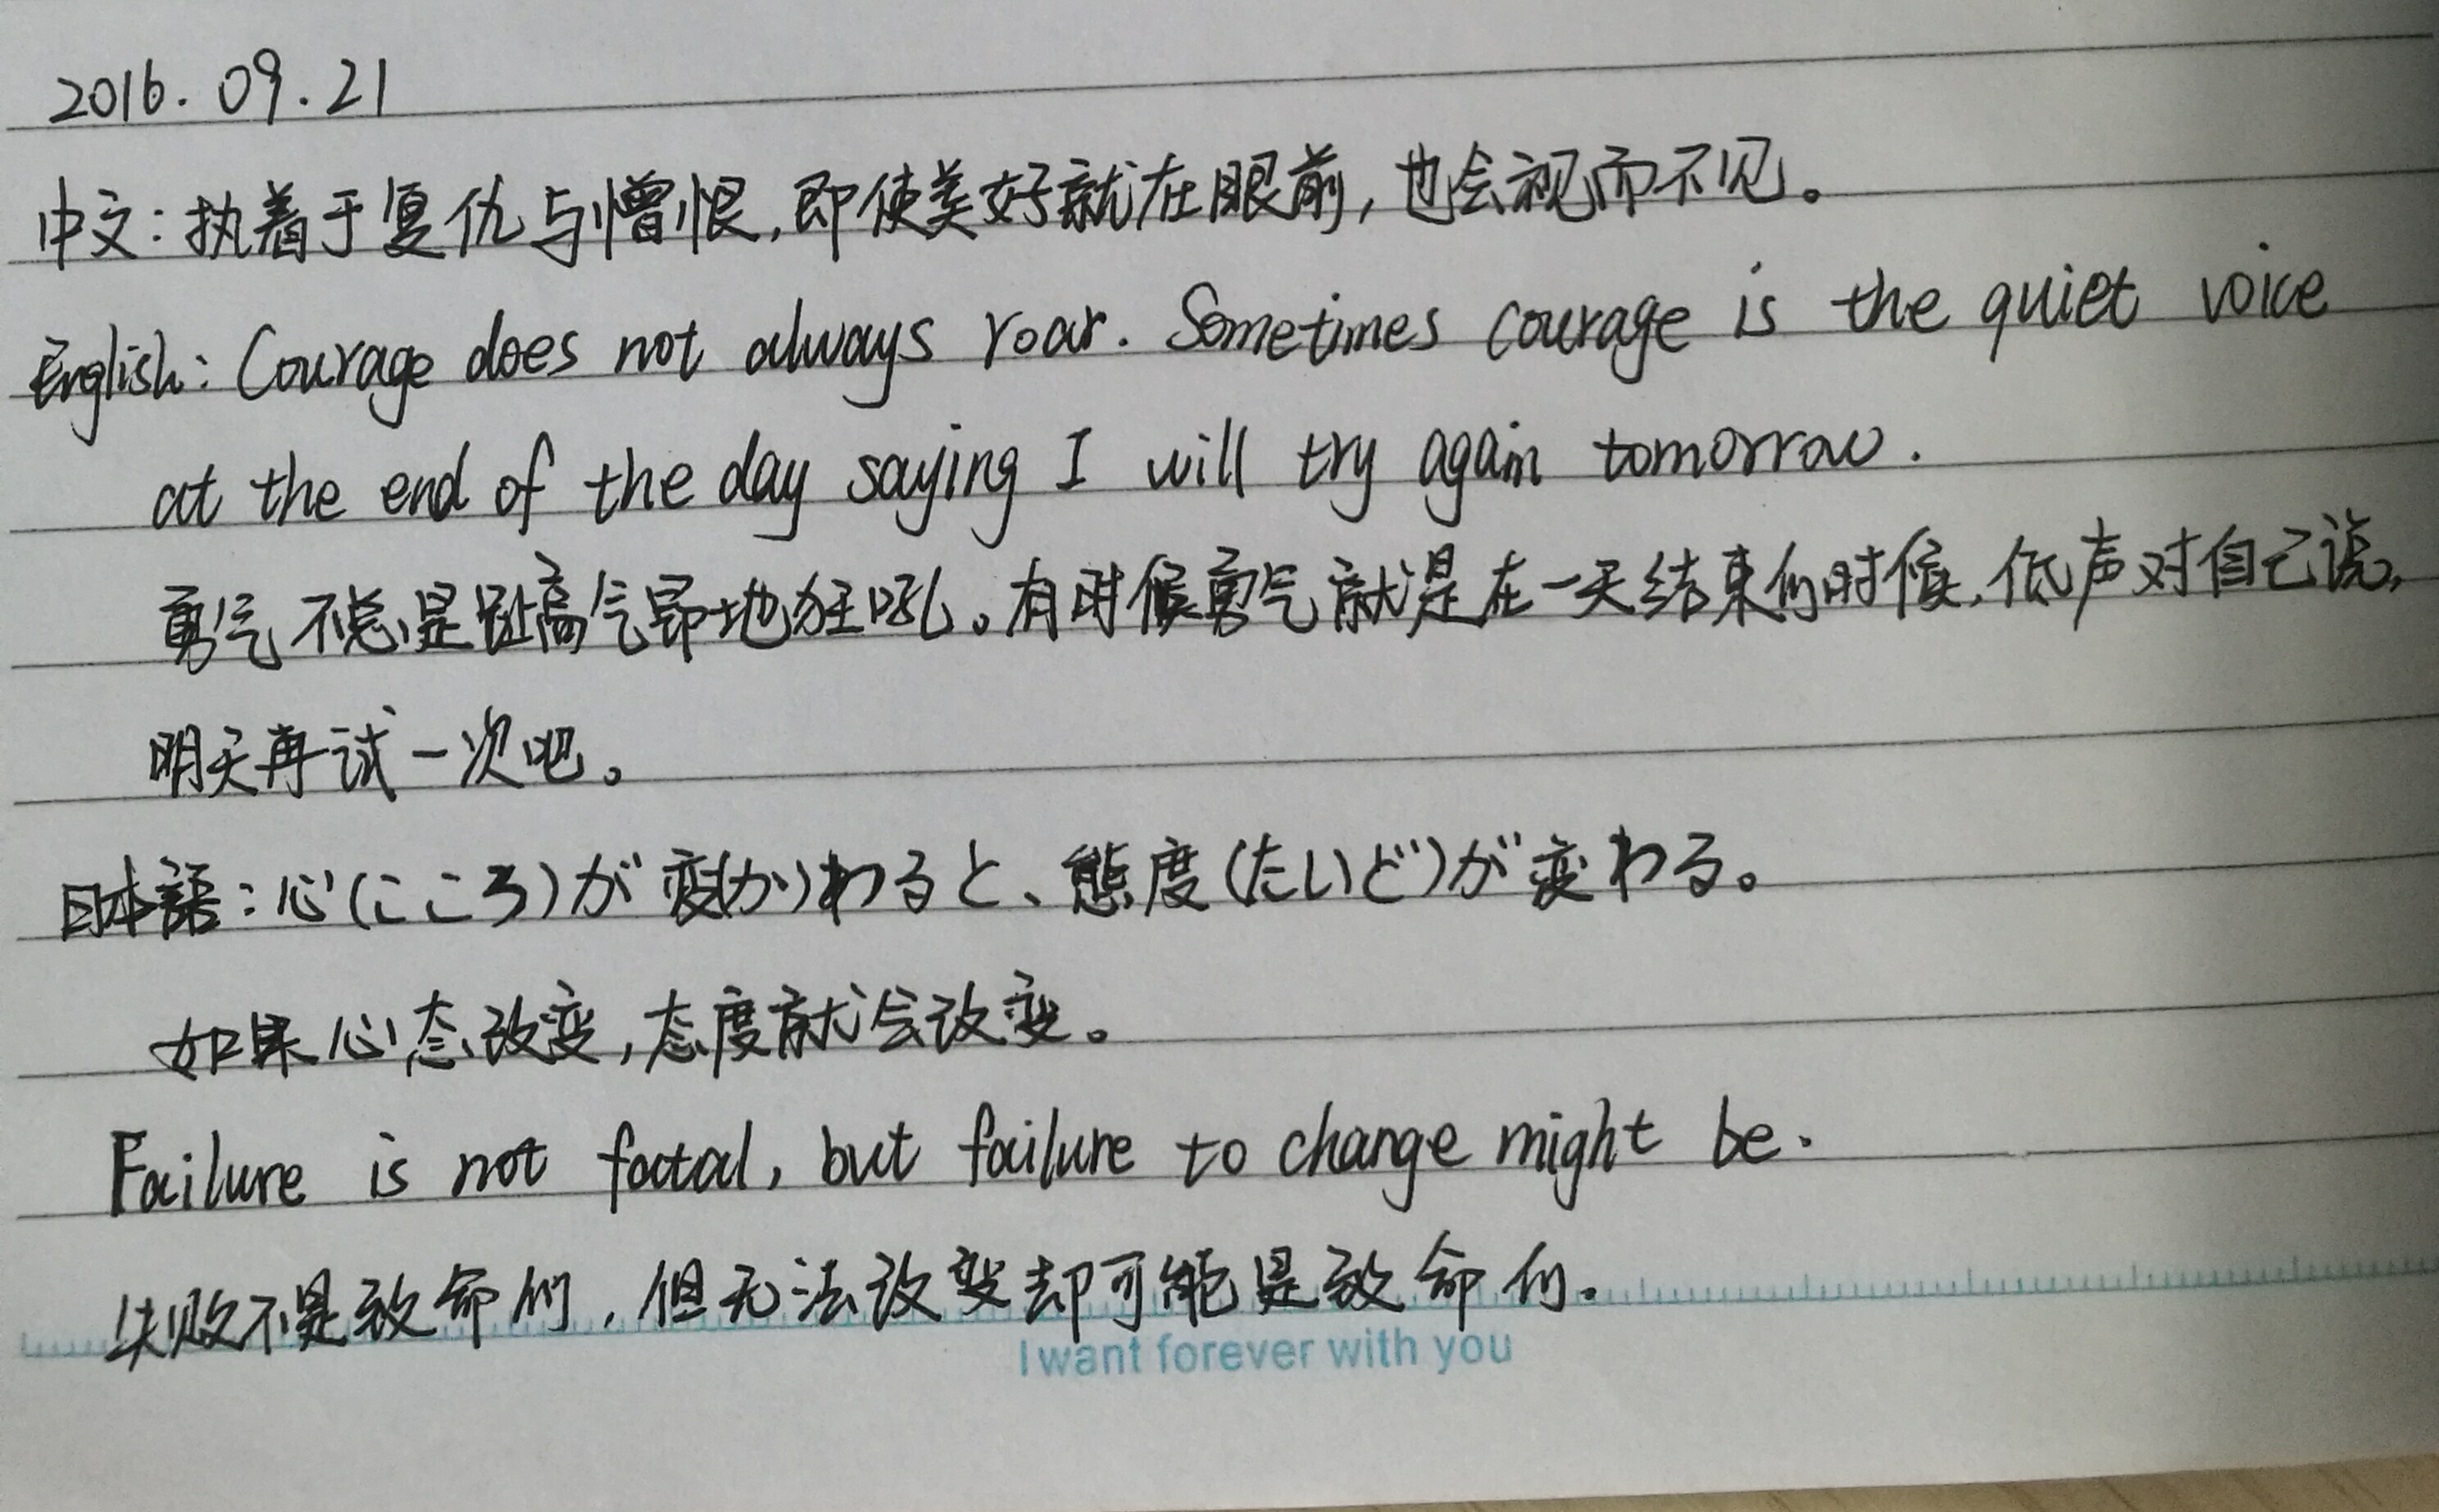 2016.09.21
中文：执着于复仇与憎恨，即使美好就在眼前，也会视而不见。
English: Courage does not always roar. Sometimes courage is the quiet voice
at the end of the day saying I will try again tomorrow.
勇气不总是趾高气昂地狂吼。有时候勇气就是在一天结束的时候，低声对自己说，
明天再试一次吧。
日本語：心(こころ)が変(か)わると、態度(たいど)が変わる。
如果心态改变，态度就会改变。
Failure is not fatal, but failure to change might be.
失败不是致命的，但无法改变却可能是致命的。
I want forever with you